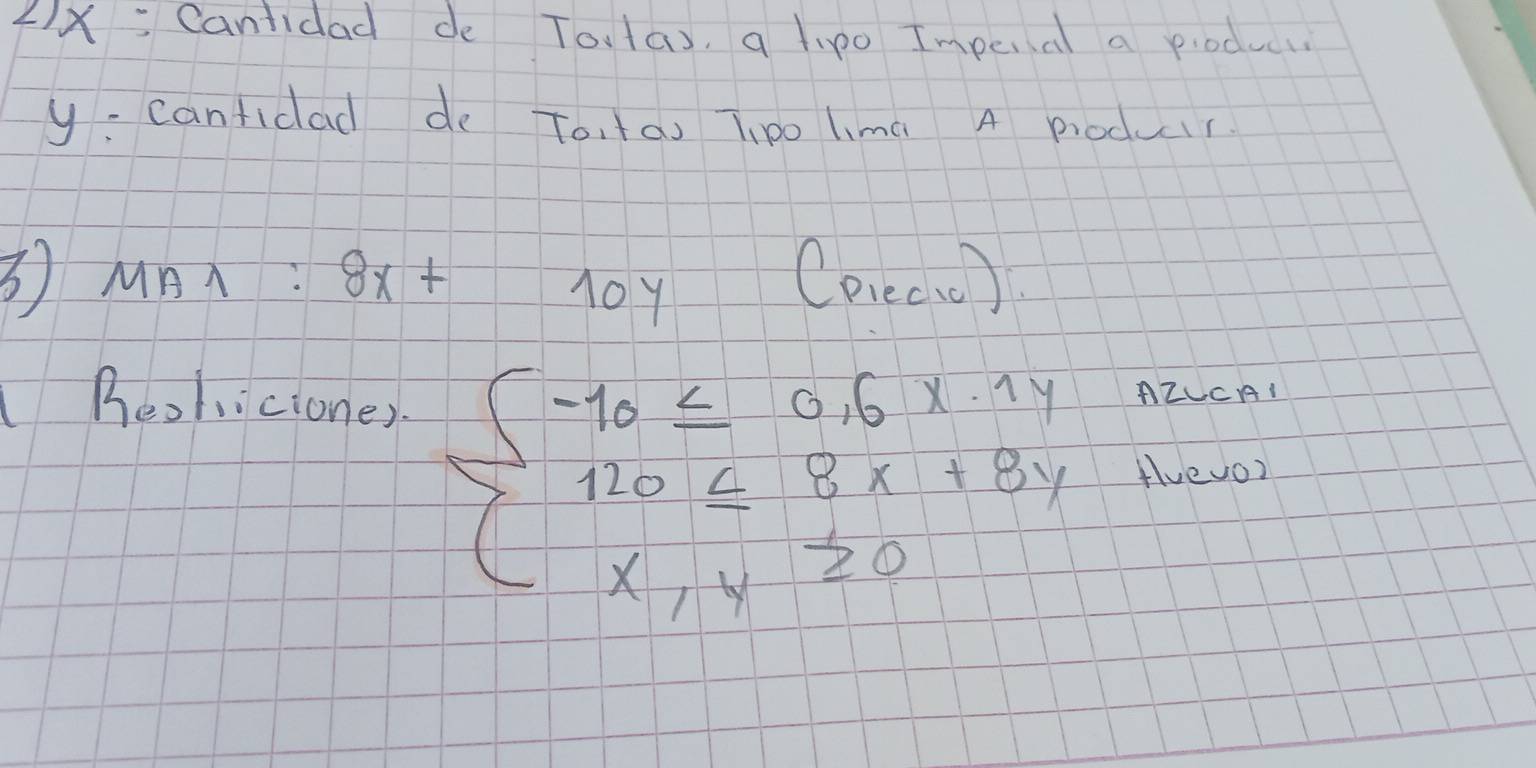 2) X : Cantidad de Tortas. a tipo Imperial a producir
y : cantidad de Tortas Tipo lima A producir.
3) MAX : 8x + 10y (precio).
Restricciones. -10 ≤ 0,6 x . 1y AZUCAr
120 ≤ 8x + 8y Huevos
x, y ≥ 0